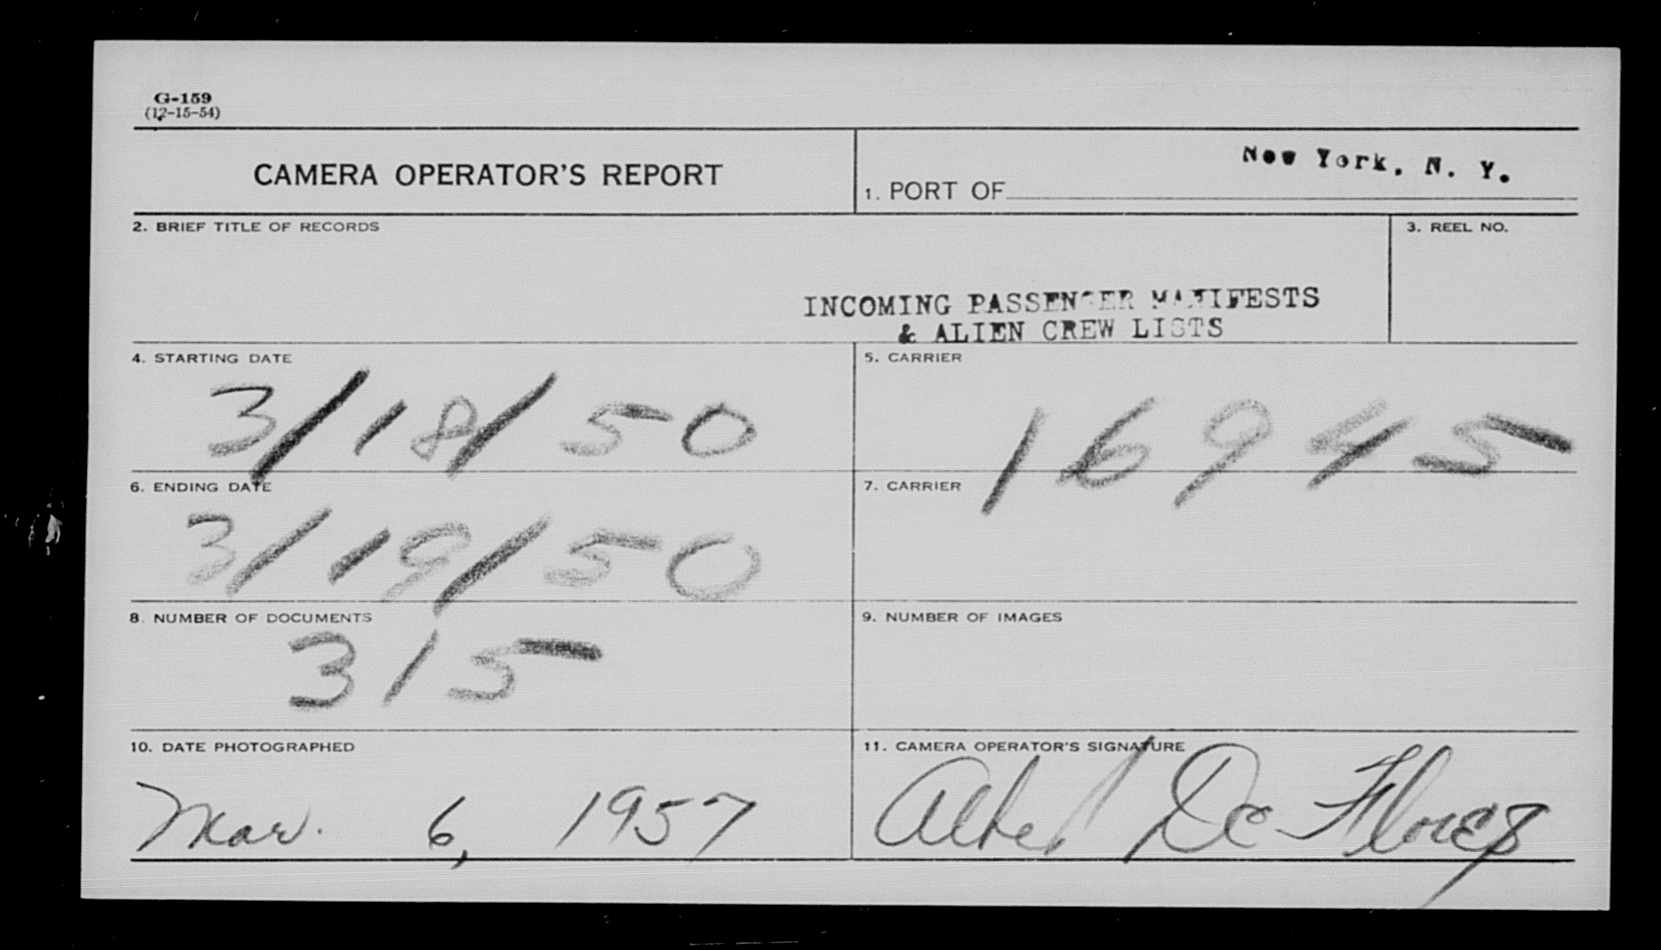 G-159
(12-15-54)
CAMERA OPERATOR'S REPORT
1. PORT OF New York, N. Y.
2. BRIEF TITLE OF RECORDS
INCOMING PASSENGER MANIFESTS
& ALIEN CREW LISTS
3. REEL NO.
4. STARTING DATE
3/18/50
5. CARRIER
16945
6. ENDING DATE
3/19/50
7. CARRIER
8. NUMBER OF DOCUMENTS
315
9. NUMBER OF IMAGES
10. DATE PHOTOGRAPHED
Mar. 6, 1957
11. CAMERA OPERATOR'S SIGNATURE
De Flores